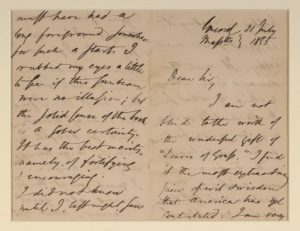 must have had a
long foreground somewhere
for such a start. I
rubbed my eyes a little
to see if this sunbeam
were no illusion; but
the solid sense of the book
is a sober certainty.
It has the best merits,
namely, of fortifying
& encouraging.
I did not know
until I, last night, saw
Concord 21 July
Massts } 1855
Dear Sir,
I am not
blind to the worth of
the wonderful gift of
"Leaves of Grass." I find
it the most extraordinary
piece of wit & wisdom
that America has yet
contributed. I am very